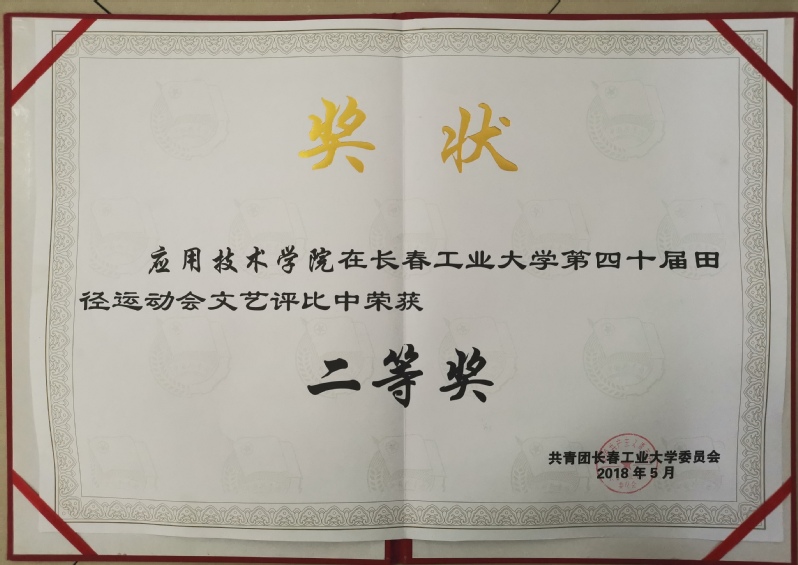 奖状
应用技术学院在长春工业大学第四十届田
径运动会文艺评比中荣获
二等奖
共青团长春工业大学委员会
2018年5月